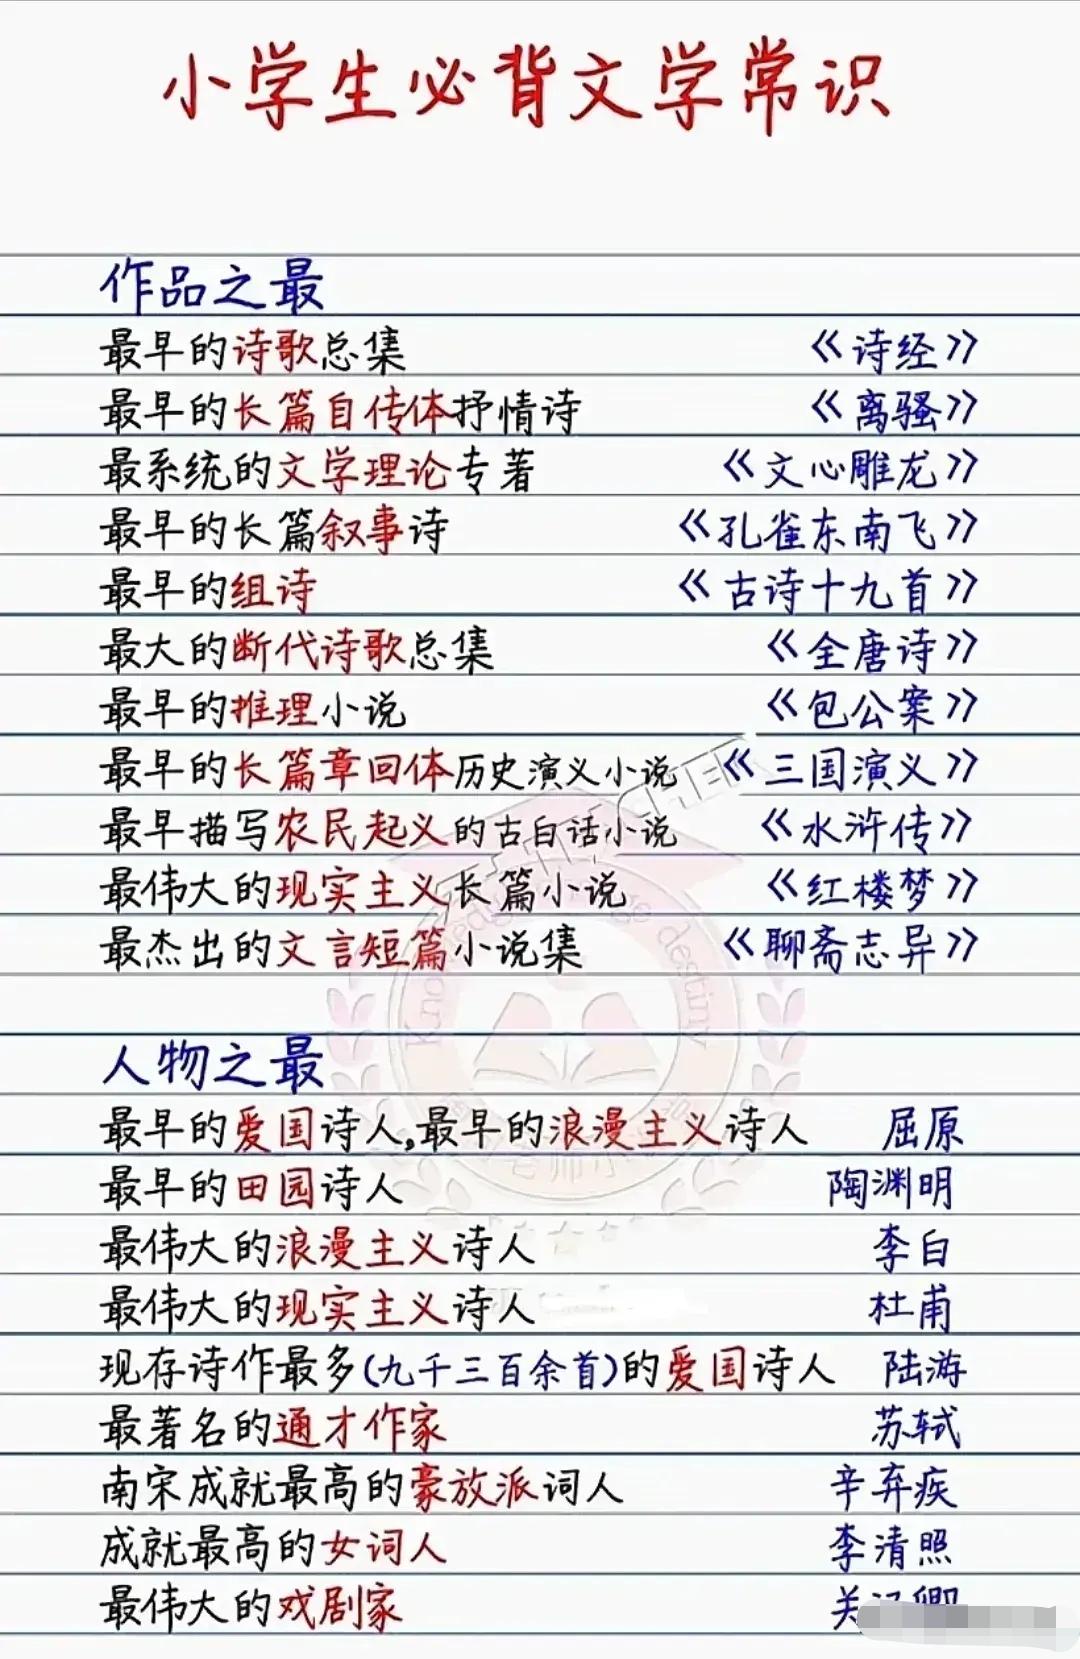 小学生必背文学常识
作品之最
最早的诗歌总集 《诗经》
最早的长篇自传体抒情诗 《离骚》
最系统的文学理论专著 《文心雕龙》
最早的长篇叙事诗 《孔雀东南飞》
最早的组诗 《古诗十九首》
最大的断代诗歌总集 《全唐诗》
最早的推理小说 《包公案》
最早的长篇章回体历史演义小说 《三国演义》
最早描写农民起义的古白话小说 《水浒传》
最伟大的现实主义长篇小说 《红楼梦》
最杰出的文言短篇小说集 《聊斋志异》
人物之最
最早的爱国诗人,最早的浪漫主义诗人 屈原
最早的田园诗人 陶渊明
最伟大的浪漫主义诗人 李白
最伟大的现实主义诗人 杜甫
现存诗作最多(九千三百余首)的爱国诗人 陆游
最著名的通才作家 苏轼
南宋成就最高的豪放派词人 辛弃疾
成就最高的女词人 李清照
最伟大的戏剧家 关